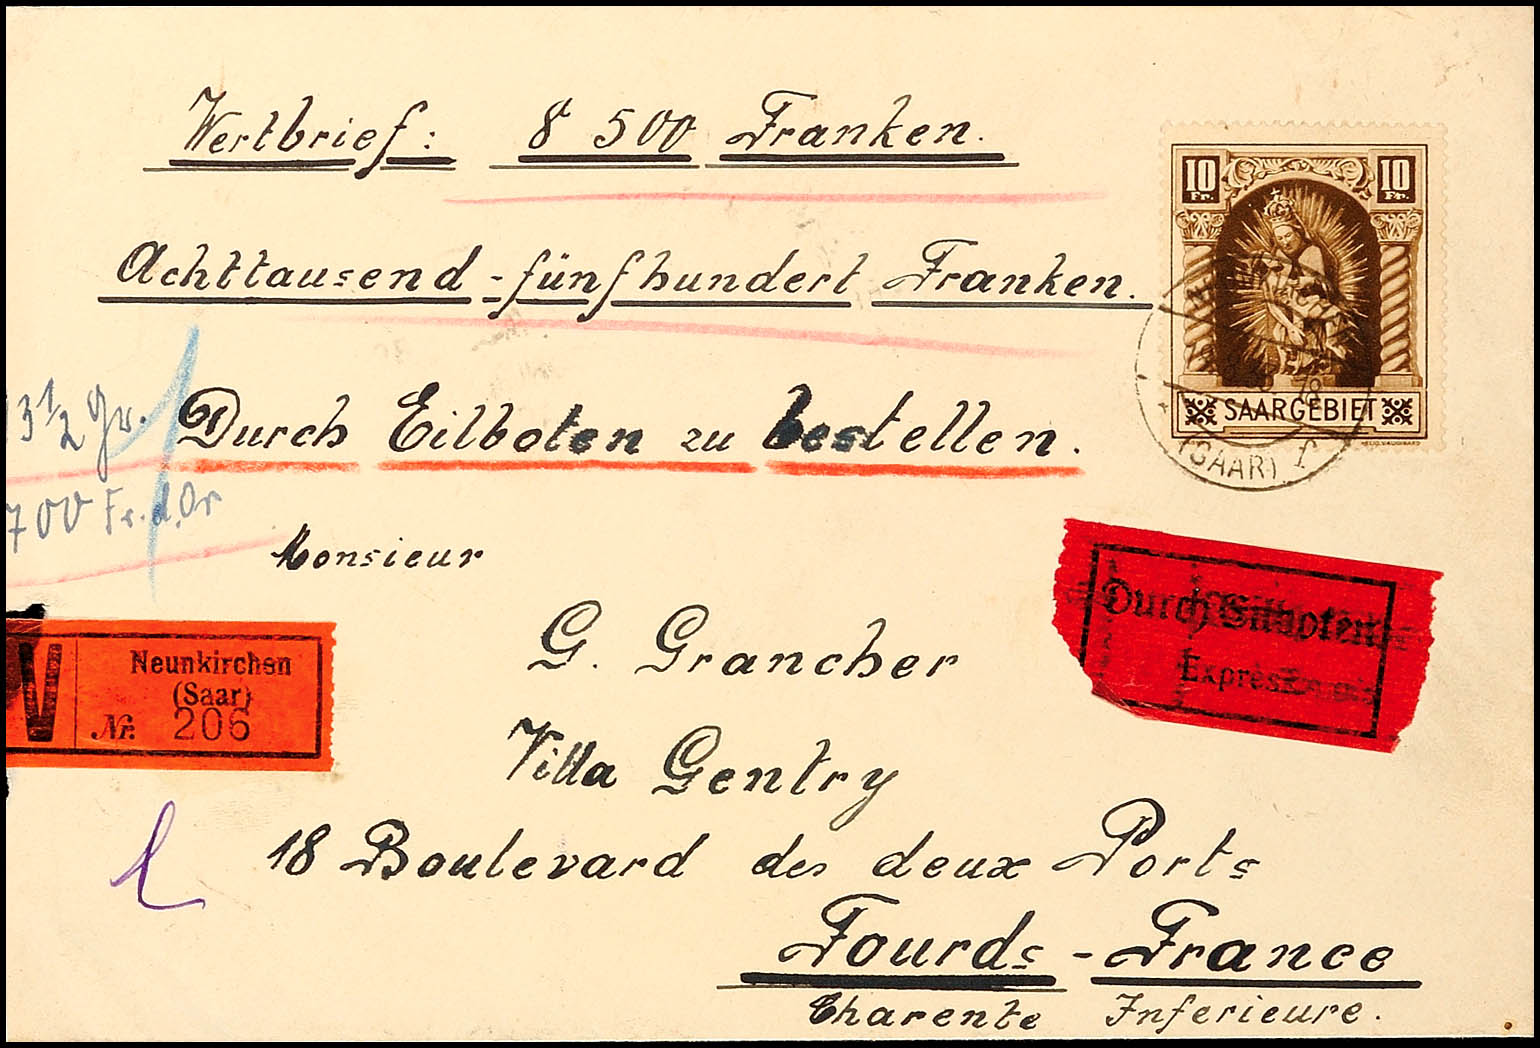 Wertbrief: 8 500 Franken.
10 Fr. 10 Fr.
Achttausend-fünfhundert Franken.
SAARGEBIET
(SAAR)
3½ Gr.
Durch Eilboten zu bestellen.
700 Fr. d'Or
Monsieur
Durch Eilboten
Exprès
G. Grancher
V Neunkirchen
(Saar)
Nr. 206
Villa Gentry
18 Boulevard des deux Ports
Fourds-France
Charente Inferieure.